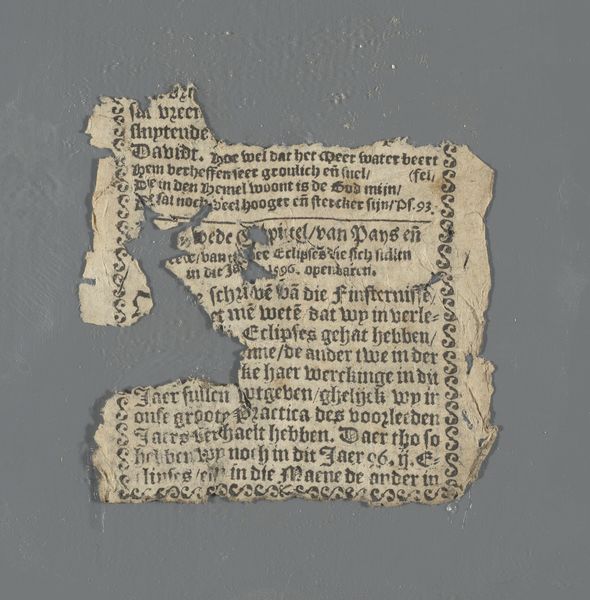 sal vreem
sluytende
Davidt. Hoe wel dat het Meer water beert
Hem verheffen seer groulich eñ snel/ (fel/
Die in den Hemel woont is de God mijn/
sal noch veel hooger eñ stercker sijn/Ps. 93.
wede Capittel/van Pays eñ
Eclipsẽ die sich sullen
in dit 1596. openbaren.
schrivẽ vã die Finsternisse/
mẽ wetẽ dat wy in verle-
Eclipses gehat hebben/
nne/de ander twe in der
ke haer werckinge in dit
Jaer sullen wtgeven/ghelijck wy in
onse groote Practica des voorleeden
Jaers verhaelt hebben. Daer tho so
hebben wy noch in dit Jaer 96. ij. E-
clipses/ein in die Maene de ander in